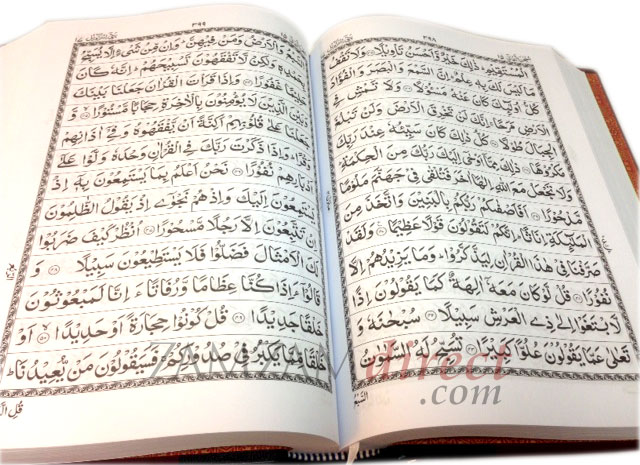 ٣٩٨
الْمُسْتَقِيْمِ ؕ ذٰلِكَ خَيْرٌ وَّاَحْسَنُ تَاْوِيْلًا ﴿۳۵﴾ وَلَا تَقْفُ
مَا لَيْسَ لَكَ بِهٖ عِلْمٌ ؕ اِنَّ السَّمْعَ وَالْبَصَرَ وَالْفُؤَادَ
كُلُّ اُولٰٓئِكَ كَانَ عَنْهُ مَسْـُٔوْلًا ﴿۳۶﴾ وَلَا تَمْشِ فِي
الْاَرْضِ مَرَحًا ۚ اِنَّكَ لَنْ تَخْرِقَ الْاَرْضَ وَلَنْ تَبْلُغَ
الْجِبَالَ طُوْلًا ﴿۳۷﴾ كُلُّ ذٰلِكَ كَانَ سَيِّئُهٗ عِنْدَ رَبِّكَ
مَكْرُوْهًا ﴿۳۸﴾ ذٰلِكَ مِمَّاۤ اَوْحٰۤى اِلَيْكَ رَبُّكَ مِنَ الْحِكْمَةِ ؕ
وَلَا تَجْعَلْ مَعَ اللّٰهِ اِلٰهًا اٰخَرَ فَتُلْقٰى فِيْ جَهَنَّمَ مَلُوْمًا
مَّدْحُوْرًا ﴿۳۹﴾ اَفَاَصْفٰىكُمْ رَبُّكُمْ بِالْبَنِيْنَ وَاتَّخَذَ مِنَ
الْمَلٰٓئِكَةِ اِنَاثًا ؕ اِنَّكُمْ لَتَقُوْلُوْنَ قَوْلًا عَظِيْمًا ﴿۴۰﴾ وَلَقَدْ
صَرَّفْنَا فِيْ هٰذَا الْقُرْاٰنِ لِيَذَّكَّرُوْا ؕ وَمَا يَزِيْدُهُمْ اِلَّا
نُفُوْرًا ﴿۴۱﴾ قُلْ لَّوْ كَانَ مَعَهٗۤ اٰلِهَةٌ كَمَا يَقُوْلُوْنَ اِذًا
لَّابْتَغَوْا اِلٰى ذِي الْعَرْشِ سَبِيْلًا ﴿۴۲﴾ سُبْحٰنَهٗ وَ
تَعٰلٰى عَمَّا يَقُوْلُوْنَ عُلُوًّا كَبِيْرًا ﴿۴۳﴾ تُسَبِّحُ لَهُ السَّمٰوٰتُ
السَّبْعُ
٣٩٩
السَّبْعُ وَالْاَرْضُ وَمَنْ فِيْهِنَّ ؕ وَاِنْ مِّنْ شَيْءٍ اِلَّا يُسَبِّحُ
بِحَمْدِهٖ وَلٰكِنْ لَّا تَفْقَهُوْنَ تَسْبِيْحَهُمْ ؕ اِنَّهٗ كَانَ
حَلِيْمًا غَفُوْرًا ﴿۴۴﴾ وَاِذَا قَرَاْتَ الْقُرْاٰنَ جَعَلْنَا بَيْنَكَ
وَبَيْنَ الَّذِيْنَ لَا يُؤْمِنُوْنَ بِالْاٰخِرَةِ حِجَابًا مَّسْتُوْرًا ﴿۴۵﴾
وَّجَعَلْنَا عَلٰى قُلُوْبِهِمْ اَكِنَّةً اَنْ يَّفْقَهُوْهُ وَفِيْۤ اٰذَانِهِمْ
وَقْرًا ؕ وَاِذَا ذَكَرْتَ رَبَّكَ فِي الْقُرْاٰنِ وَحْدَهٗ وَلَّوْا عَلٰۤى
اَدْبَارِهِمْ نُفُوْرًا ﴿۴۶﴾ نَحْنُ اَعْلَمُ بِمَا يَسْتَمِعُوْنَ بِهٖۤ اِذْ
يَسْتَمِعُوْنَ اِلَيْكَ وَاِذْ هُمْ نَجْوٰۤى اِذْ يَقُوْلُ الظّٰلِمُوْنَ
اِنْ تَتَّبِعُوْنَ اِلَّا رَجُلًا مَّسْحُوْرًا ﴿۴۷﴾ اُنْظُرْ كَيْفَ ضَرَبُوْا
لَكَ الْاَمْثَالَ فَضَلُّوْا فَلَا يَسْتَطِيْعُوْنَ سَبِيْلًا ﴿۴۸﴾ وَ
قَالُوْۤا ءَاِذَا كُنَّا عِظَامًا وَّرُفَاتًا ءَاِنَّا لَمَبْعُوْثُوْنَ
خَلْقًا جَدِيْدًا ﴿۴۹﴾ قُلْ كُوْنُوْا حِجَارَةً اَوْ حَدِيْدًا ﴿۵۰﴾ اَوْ
خَلْقًا مِّمَّا يَكْبُرُ فِيْ صُدُوْرِكُمْ ۚ فَسَيَقُوْلُوْنَ مَنْ يُّعِيْدُنَا ؕ
قُلِ الَّ
ZAMZAM direct
.com